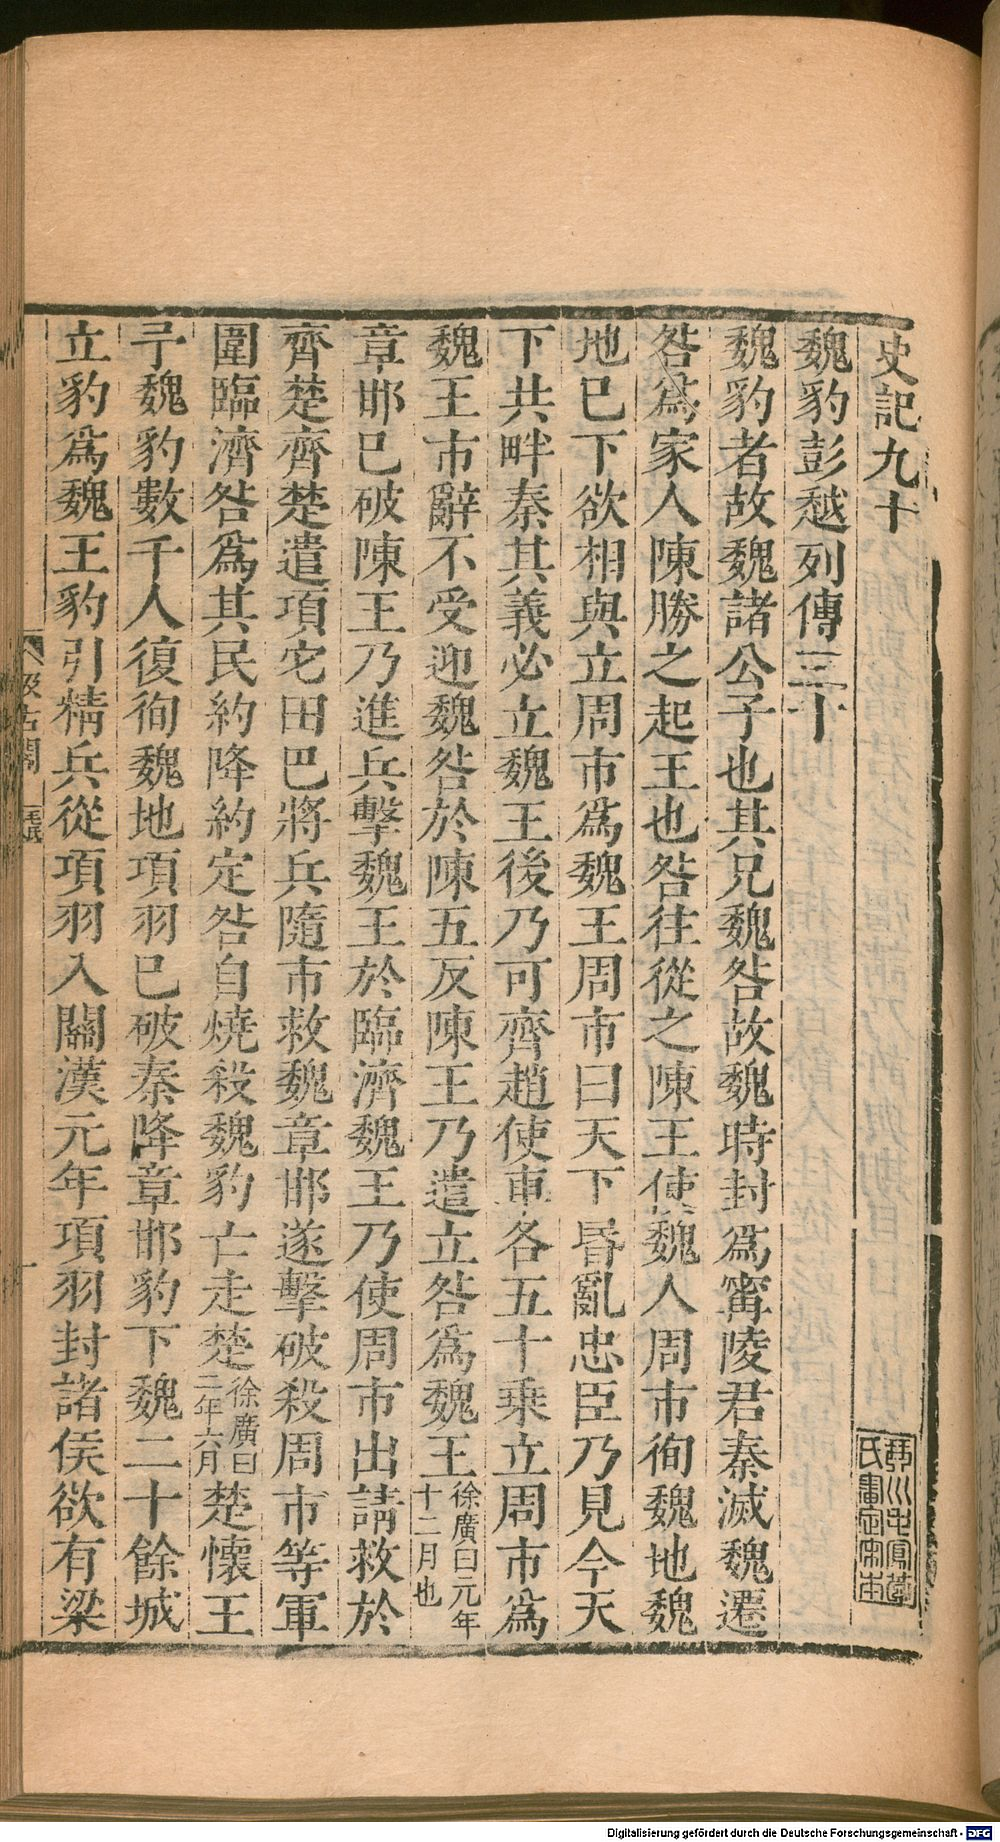 史記九十
魏豹彭越列傳三十
魏豹者故魏諸公子也其兄魏咎故魏時封爲甯陵君秦滅魏遷
咎爲家人陳勝之起王也咎往從之陳王使魏人周市徇魏地魏
地已下欲相與立周市爲魏王周市曰天下昏亂忠臣乃見今天
下共畔秦其義必立魏王後乃可齊趙使車各五十乘立周市爲
魏王市辭不受迎魏咎於陳五反陳王乃遣立咎爲魏王徐廣曰元年十二月也
章邯已破陳王乃進兵擊魏王於臨濟魏王乃使周市出請救於
齊楚齊楚遣項它田巴將兵隨市救魏章邯遂擊破殺周市等軍
圍臨濟咎爲其民約降約定咎自燒殺魏豹亡走楚徐廣曰二年六月楚懷王
予魏豹數千人復徇魏地項羽已破秦降章邯豹下魏二十餘城
立豹爲魏王豹引精兵從項羽入關漢元年項羽封諸侯欲有梁
汲古閣
毛氏
琴川毛鳳苞氏審定宋本
Digitalisierung gefördert durch die Deutsche Forschungsgemeinschaft - DFG